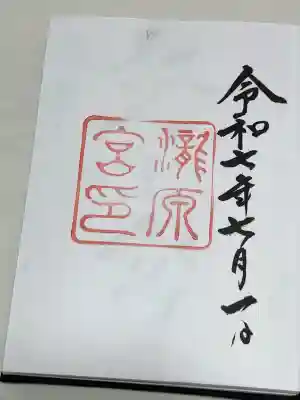 令和七年七月一日
瀧原
宮印